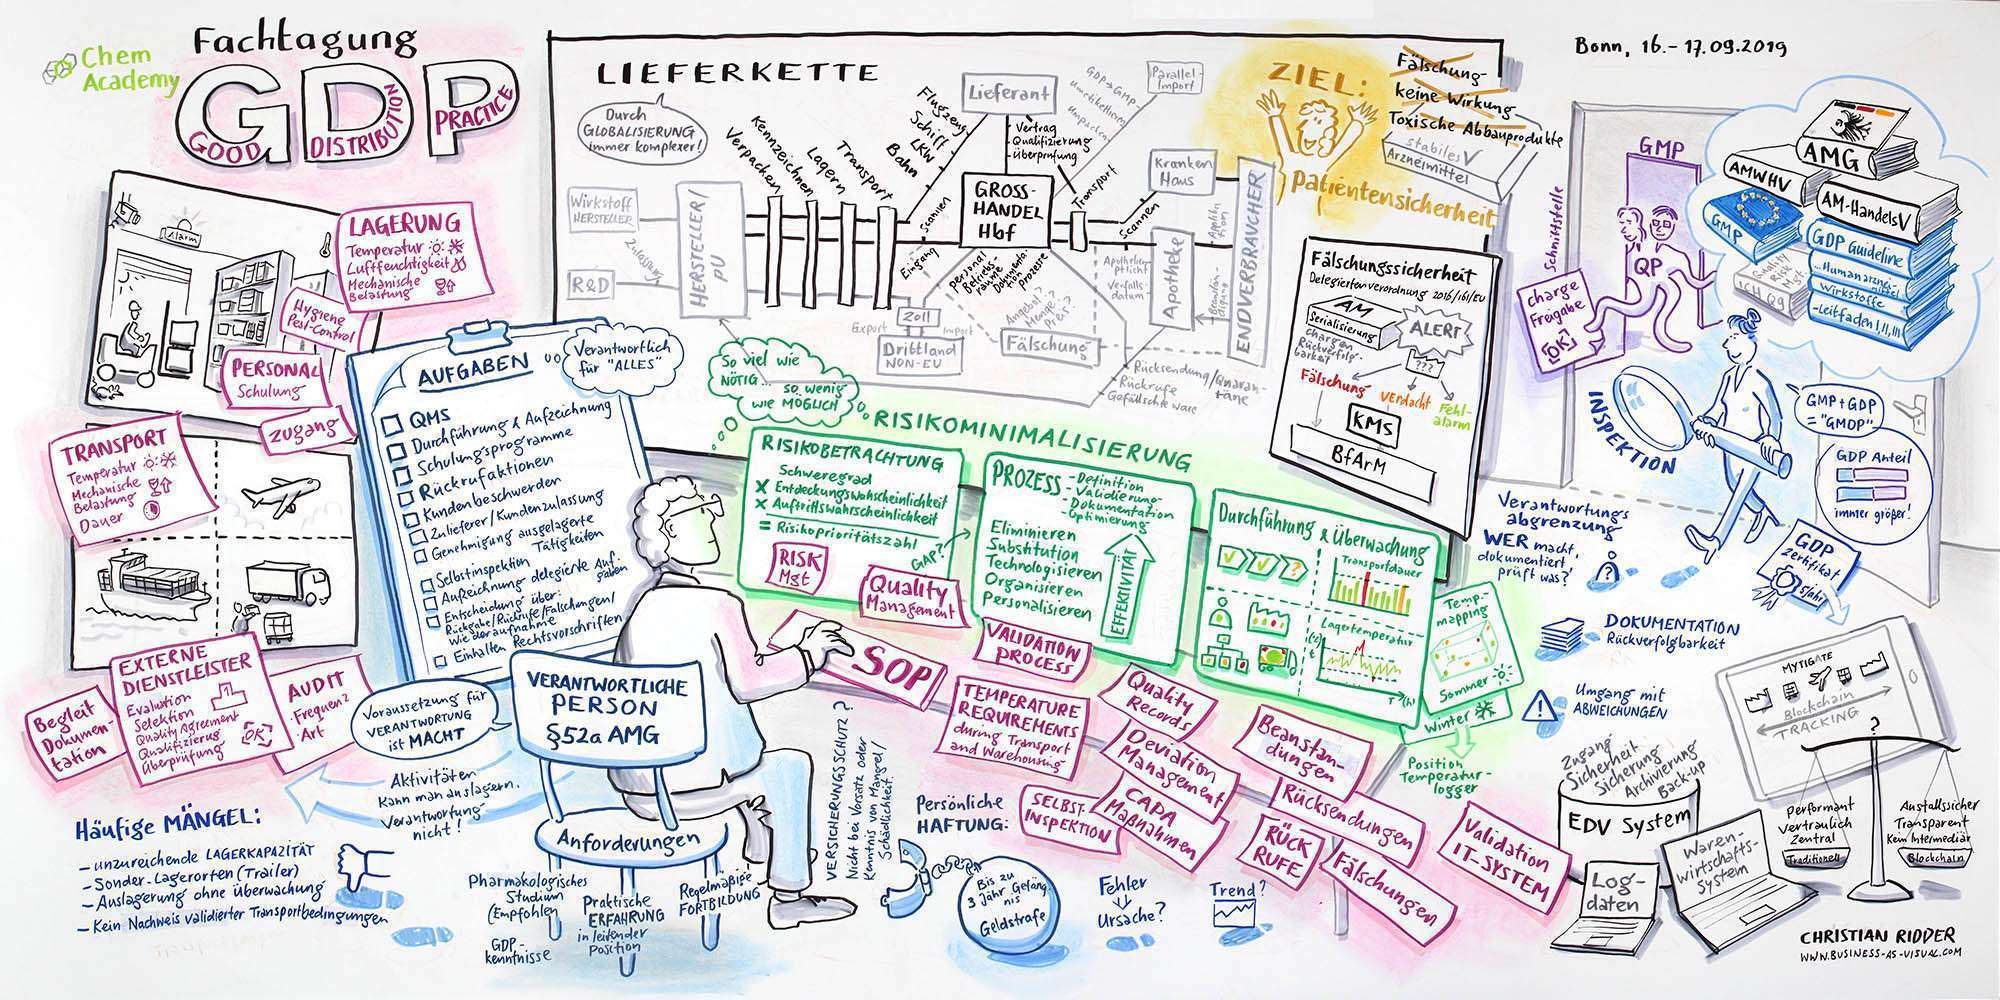 Chem
Academy
Fachtagung
GDP
GOOD
DISTRIBUTION
PRACTICE
Bonn, 16.-17.09.2019
LIEFERKETTE
Durch
GLOBALISIERUNG
immer komplexer!
Wirkstoff
HERSTELLER
R&D
Zulassung
HERSTELLER/
PU
Verpacken
Kennzeichnen
Lagern
Transport
Flugzeug
Schiff
LKW
Bahn
Scannen
Eingang
Lieferant
Vertrag
Qualifizierung
Überprüfung
GDP→GMP-
Umetikettieren
Umpacken
Parallel-
import
GROSS-
HANDEL
Hbf
Personal
Betriebs-
räume
Dokumenta-
tion
Prozesse
Transport
Scannen
Kranken
Haus
Apotheke
Apotheken-
pflicht
Verfalls-
datum
ENDVERBRAUCHER
2011
Export
Import
Drittland
NON-EU
Angebot?
Menge?
Preis?
Fälschung
Rücksendung/Quaran-
täne
Rückrufe
Gefälschte Ware
ZIEL:
Patientensicherheit
Fälschung
keine Wirkung
Toxische Abbauprodukte
stabiles
Arzneimittel
Fälschungssicherheit
Delegiertenverordnung 2016/161/EU
AM
Serialisierung
Chargen
Rückverfolg-
barkeit
ALERT
???
Fälschung
Verdacht
Fehl-
alarm
KMS
BfArM
GMP
Schnittstelle
QP
Charge
Freigabe
[OK]
AMG
AMWHV
AM-HandelsV
GMP
GDP Guideline
Quality
Risk
Mgt.
ICH Q9
...Humanarznei-
mittel
Wirkstoffe
-Leitfaden I, II, III
INSPEKTION
GMP+GDP
="GMDP"
GDP Anteil
immer größer!
GDP
Zertifikat
5 Jahre
Verantwortungs
abgrenzung
WER macht,
dokumentiert
prüft was?
DOKUMENTATION
Rückverfolgbarkeit
Umgang mit
ABWEICHUNGEN
Alarm
LAGERUNG
Temperatur
Luftfeuchtigkeit
Mechanische
Belastung
Hygiene
Pest-Control
PERSONAL
Schulung
Zugang
TRANSPORT
Temperatur
Mechanische
Belastung
Dauer
AUFGABEN
Verantwortlich
für "ALLES"
QMS
Durchführung & Aufzeichnung
Schulungsprogramme
Rückrufaktionen
Kundenbeschwerden
Zulieferer/Kundenzulassung
Genehmigung ausgelagerte
Tätigkeiten
Selbstinspektion
Aufzeichnung delegierte Auf
gaben
Entscheidung über:
Rückgabe/Rückrufe/Fälschungen/
Wiederaufnahme
Einhalten Rechtsvorschriften
So viel wie
NÖTIG...
so wenig
wie MÖGLICH
RISIKOMINIMALISIERUNG
RISIKOBETRACHTUNG
Schweregrad
x Entdeckungswahrscheinlichkeit
x Auftrittswahrscheinlichkeit
= Risikoprioritätszahl
GAP?
RISK
Mgt
Quality
Management
PROZESS
-Definition
-Validierung
-Dokumentation
-Optimierung
Eliminieren
Substitution
Technologisieren
Organisieren
Personalisieren
EFFEKTIVITÄT
Durchführung & Überwachung
Transportdauer
Lagertemperatur
Temp.-
mapping
Sommer
Winter
Position
Temperatur-
logger
EXTERNE
DIENSTLEISTER
Evaluation
Selektion
Quality Agreement
Qualifizierug
Überprüfung
[OK]
Begleit
Dokumen-
tation
AUDIT
·Frequenz
·Art
Voraussetzung für
VERANTWORTUNG
ist MACHT
VERANTWORTLICHE
PERSON
§52a AMG
Aktivitäten
kann man auslagern.
Verantwortung
nicht!
Häufige MÄNGEL:
-unzureichende LAGERKAPAZITÄT
-Sonder-Lagerorten (Trailer)
-Auslagerung ohne Überwachung
-Kein Nachweis validierter Transportbedingungen
Anforderungen
Pharmakologisches
Studium
(Empfohlen
GDP-
kenntnisse
Praktische
ERFAHRUNG
in leitender
Position
Regelmäßige
FORTBILDUNG
VERSICHERUNGSSCHUTZ?
Nicht bei Vorsatz oder
Kenntnis von Mangel/
Schädlichkeit.
Persönliche
HAFTUNG:
Bis zu
3 Jahr Gefäng
nis
Geldstrafe
Fehler
Ursache?
Trend?
SOP
VALIDATION
PROCESS
TEMPERATURE
REQUIREMENTS
during Transport
and Warehousing
Quality
Records
Deviation
Management
CAPA
Maßnahmen
SELBST-
INSPEKTION
Beanstan-
dungen
Rücksendungen
RÜCK
RUFE
Fälschungen
Validation
IT-SYSTEM
Zugang
Sicherheit
Sicherung
Archivierung
Back-up
EDV System
Log-
daten
Waren-
wirtschafts-
system
MYTIGATE
Blockchain
TRACKING
?
Performant
Vertraulich
Zentral
Traditionell
Ausfallssicher
Transparent
Kein Intermediär
Blockchain
CHRISTIAN RIDDER
WWW.BUSINESS-AS-VISUAL.COM